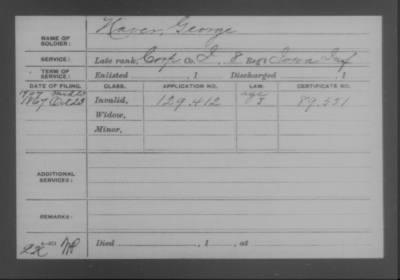 NAME OF SOLDIER: Haven, George
SERVICE: Late rank, Corp Co. I, 8 Reg't Iowa Inf
TERM OF SERVICE: Enlisted , 1 Discharged , 1
DATE OF FILING. CLASS. APPLICATION NO. LAW. CERTIFICATE NO.
Invalid, 129.412 89.531
Widow,
Minor,
ADDITIONAL SERVICES:
REMARKS:
Died , 1 , at